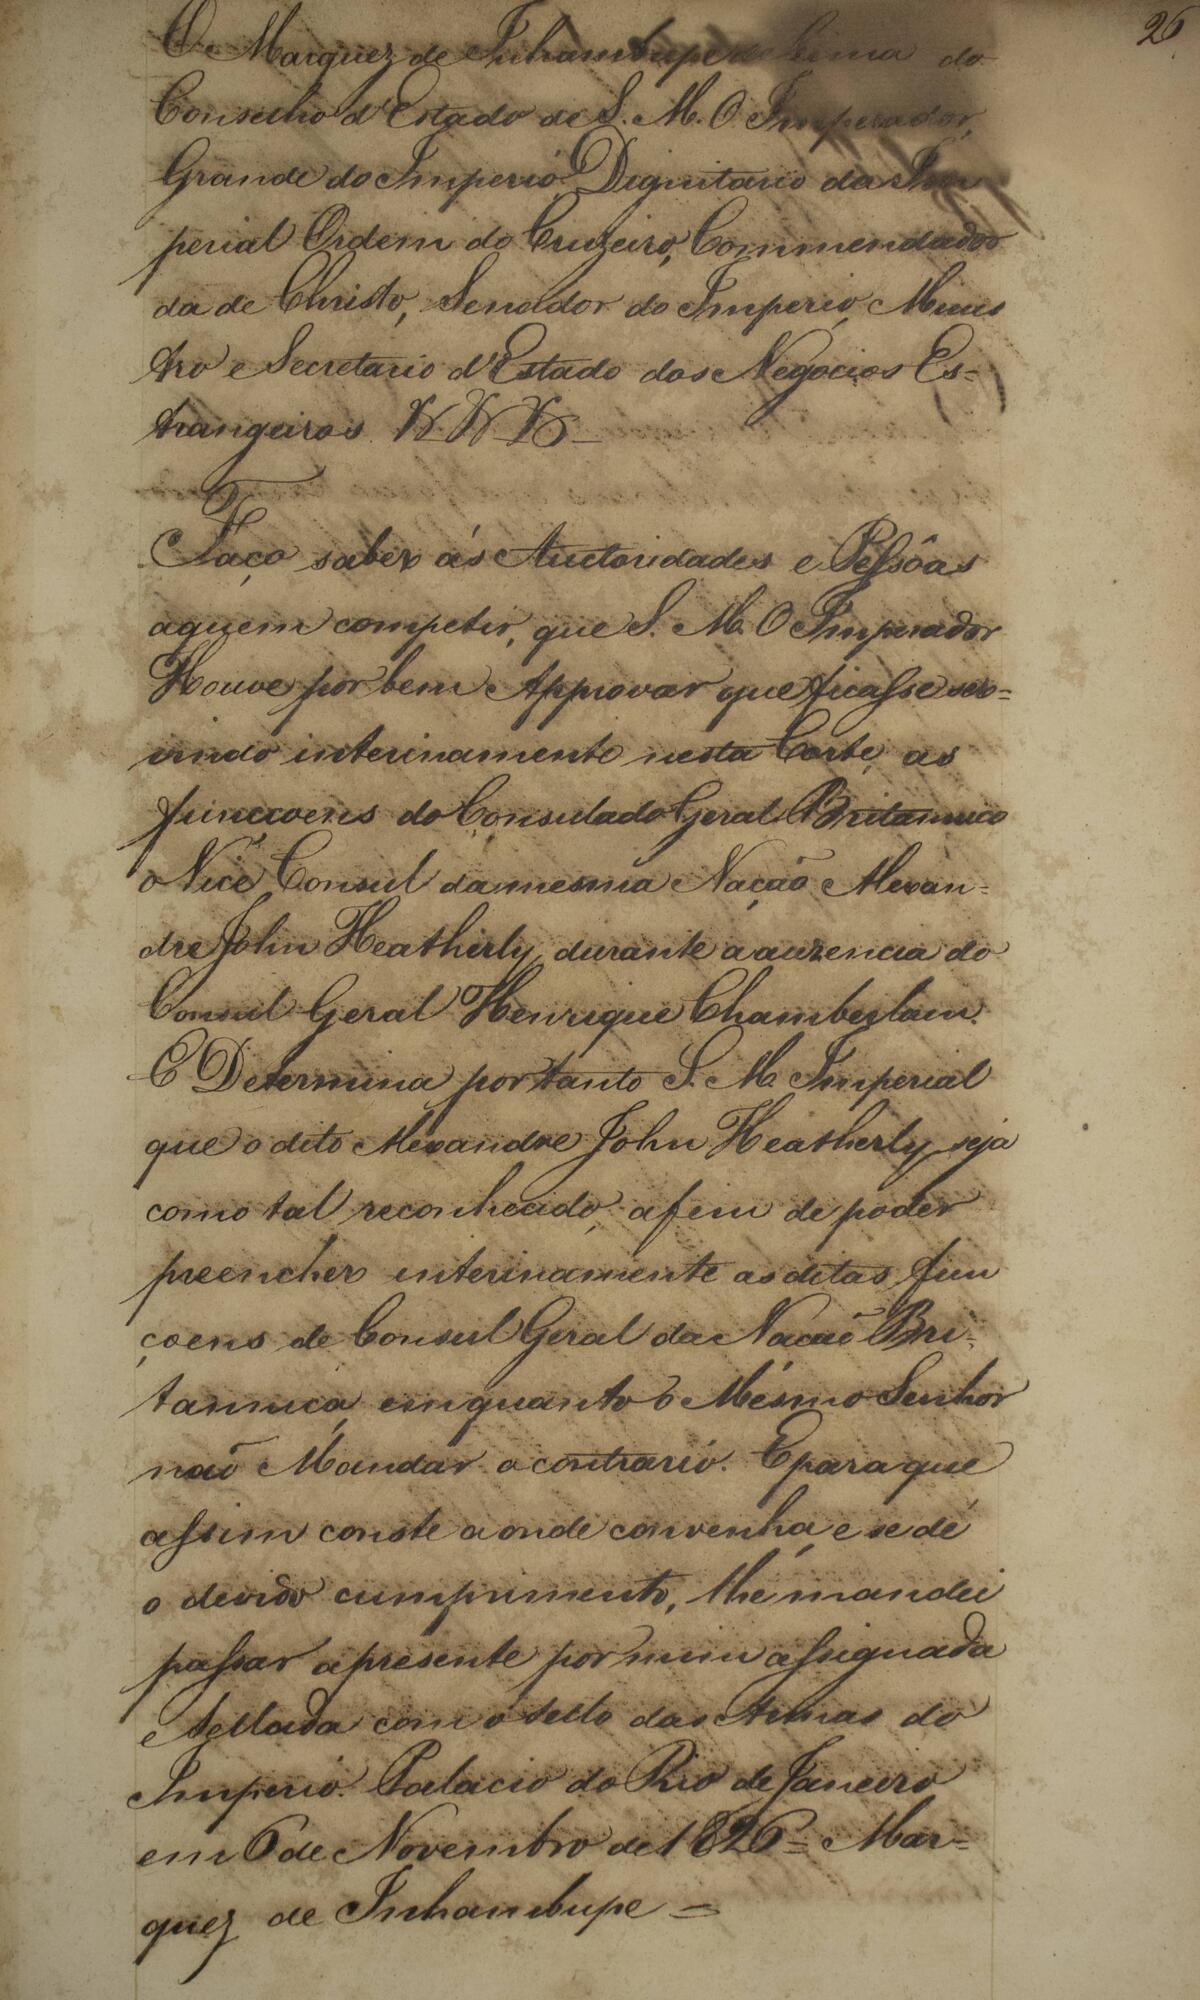 26
O Marquez de Inhambupe de Sima do
Conselho d'Estado de S. M. O Imperador,
Grande do Imperio, Dignitario da Im
perial Ordem do Cruzeiro, Commendador
da de Christo, Senador do Imperio, Minis
tro e Secretario d'Estado dos Negocios Es=
trangeiros
Faço saber ás Auctoridades e Pessôas
aquem competir, que S. M. O Imperador
Houve por bem Approvar que ficasse ser=
vindo interinamente nesta Corte, as
funccoens do Consulado Geral Britannico
o Vice Consul da mesma Nação Alexan=
dre John Heatherly, durante a auzencia do
Consul Geral Henrique Chamberlain.
E Determina por tanto S. M. Imperial
que o dito Alexandre John Heatherly seja
como tal reconhecido, afim de poder
preencher interinamente as ditas fun
çoens de Consul Geral da Nacaõ Bri=
tannica, emquanto o Mésmo Senhor
naõ Mandar o contrario. E para que
assim conste a onde convenha, e se dê
o devido cumprimento, lhe mandei
passar a presente por mim assignada
e Sellada com o Sello das Armas do
Imperio. Palacio do Rio de Janeiro
em 6 de Novembro de 1826 = Mar=
quez de Inhambupe =